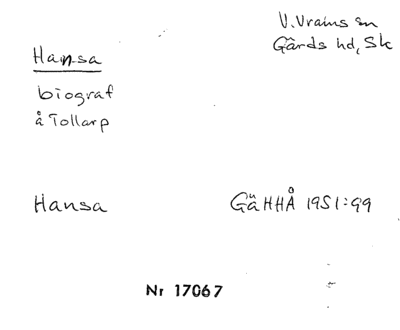 V. Vrams sn
Gärds hd, Sk
Hansa
biograf
å Tollarp
Hansa
GäHHÅ 1951:99
Nr 17067